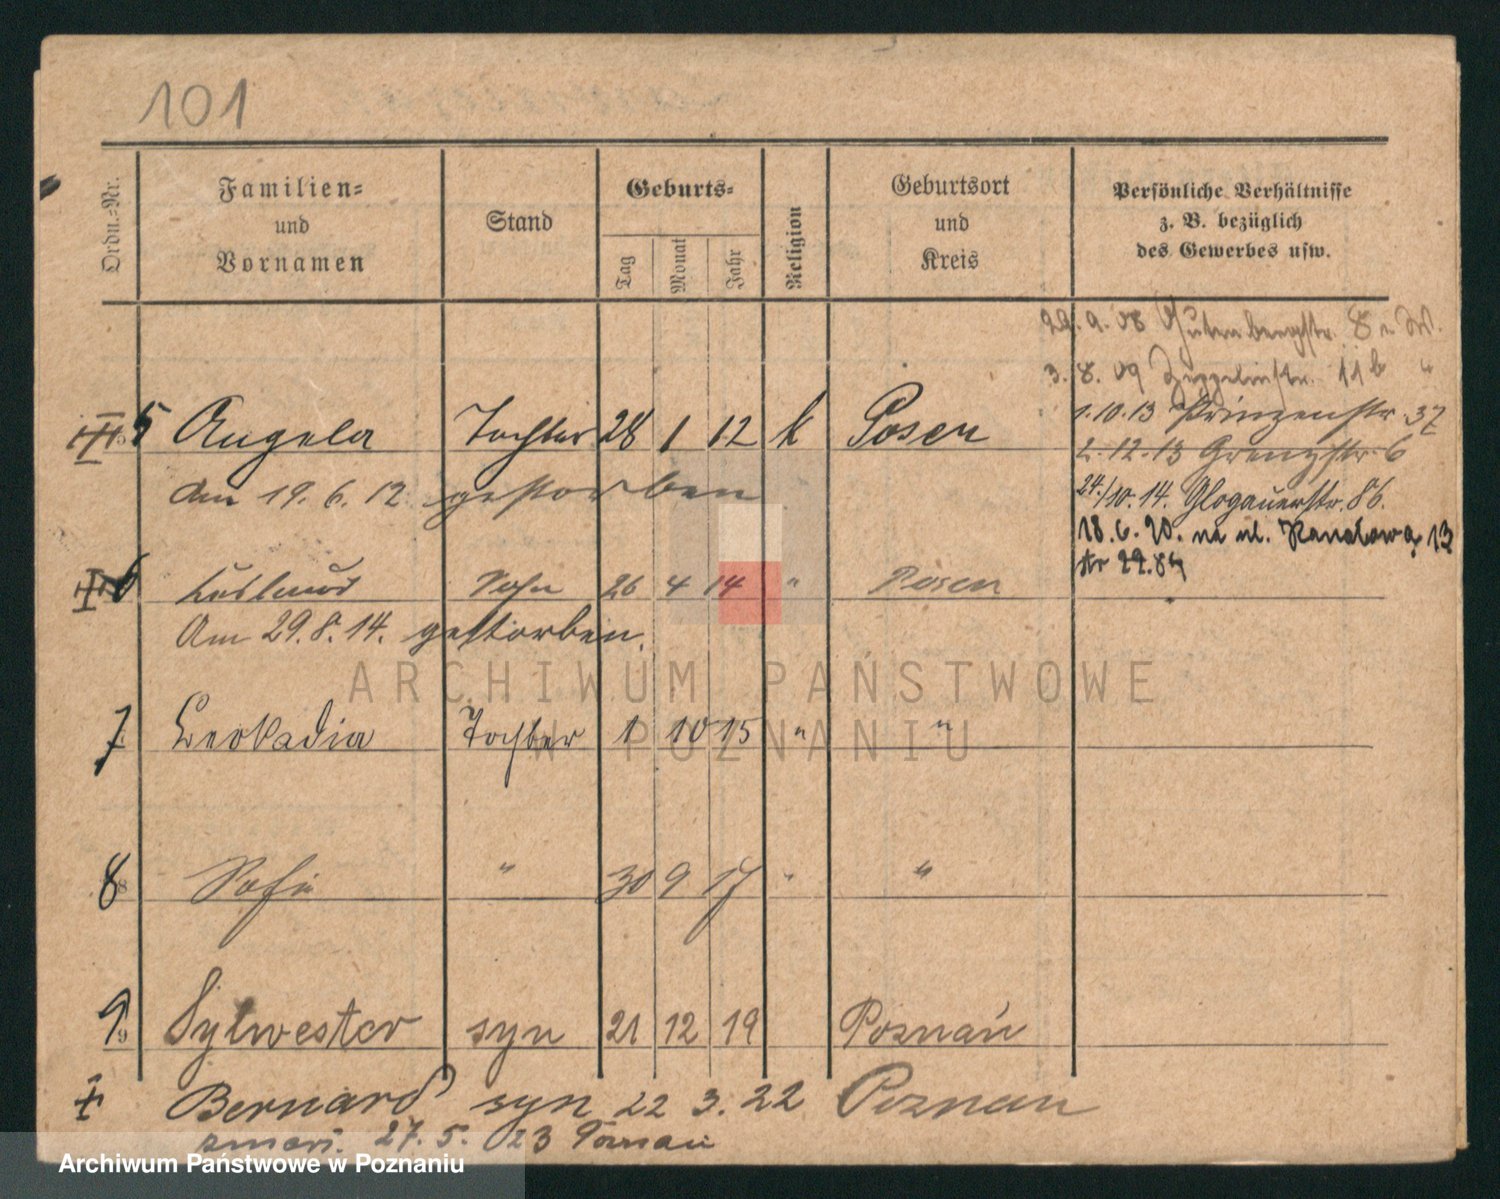 101
Ordn.-Nr.
Familien-
und
Vornamen
Stand
Geburts-
Tag
Monat
Jahr
Religion
Geburtsort
und
Kreis
Persönliche Verhältnisse
z. B. bezüglich
des Gewerbes usw.
29.9.08 Gutenbergstr. 8
3.8.09 Zeppelinstr. 11b "
1.10.13 Prinzenstr. 37
5 Angela Tochter 28 1 12 k Posen
2.12.13 Grenzstr. 6
Am 19.6.12 gestorben
24./10.14. Glogauerstr. 86.
18.6.20. na ul. Kanałową 13
str 22.84
6 Sohn 26 4 14 " Posen
Am 29.8.14. gestorben.
7 Leokadia Tochter 1 10 15 " "
8 Sofie " 30 9 17 " "
9 Sylwester syn 21 12 19 Poznań
Bernard syn 22 3. 22 Poznań
zmarł. 27. 5. 23 Poznań
ARCHIWUM PAŃSTWOWE
W POZNANIU
Archiwum Państwowe w Poznaniu